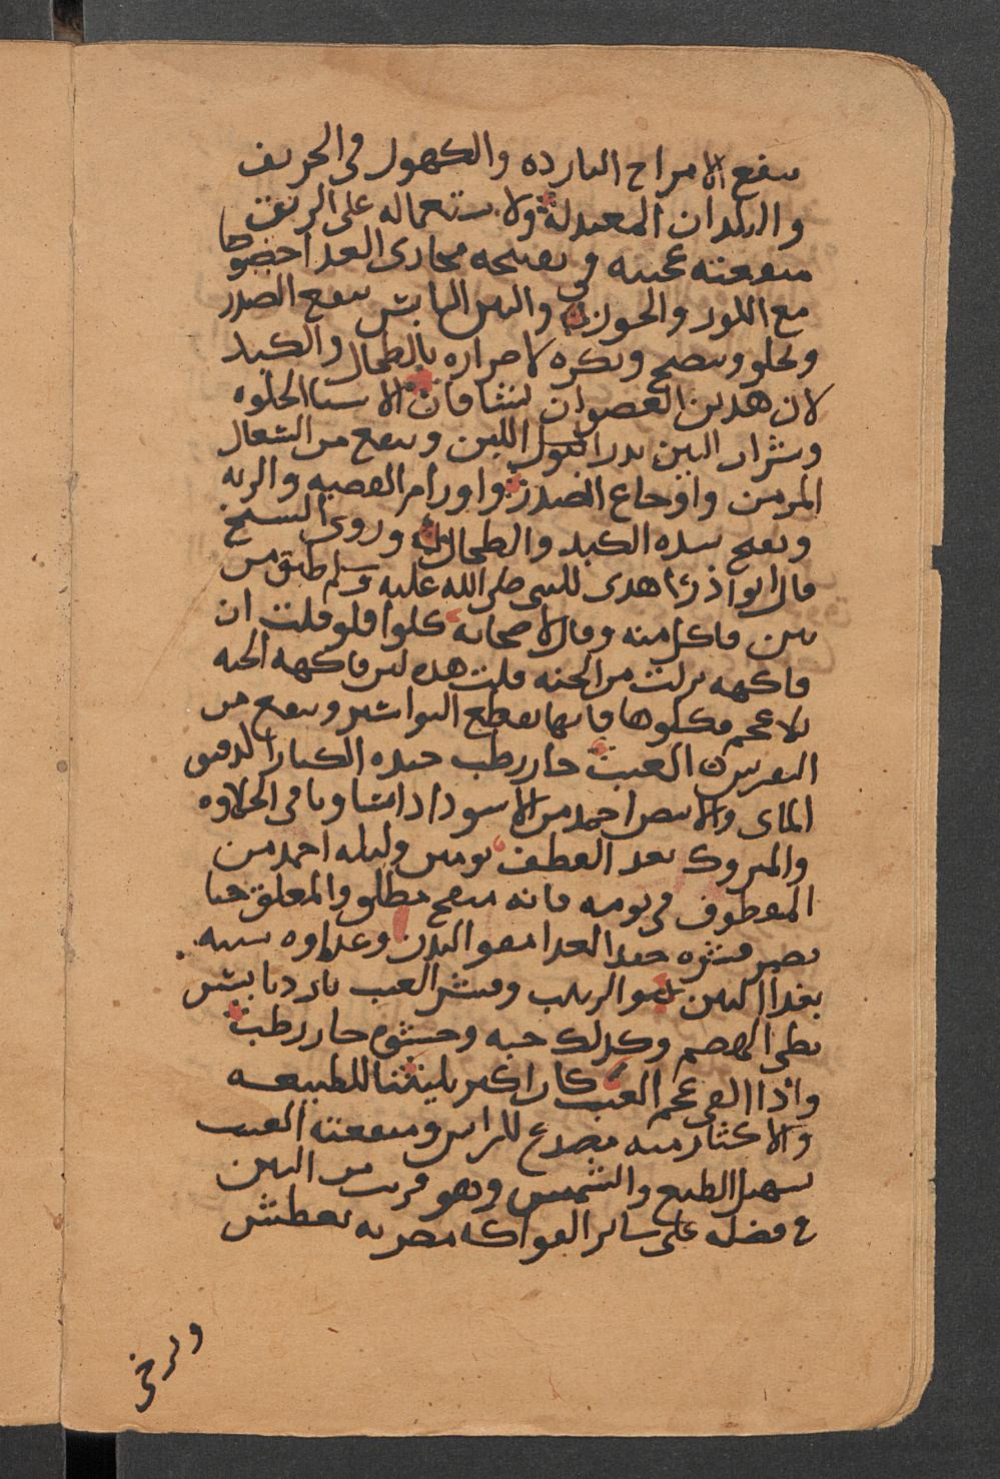 ينفع الامزاج البارده والكهول في الخريف
والبلدان المعتدلة ولاستعماله على الريق
منفعته عجيبه في تفتيحه مجاري الغدا خصوصا
مع اللوز والجوز والتين اليابس ينفع الصدر
ويجلو وينضج ويكره لاضراره بالطحال والكبد
لان هذين العضوان يشتاقان الاشيا الحلوه
وشراب التين يدر البول اللبن وينفع من السعال
المزمن واوجاع الصدر واورام القصبه والريه
ويفتح سدد الكبد والطحال وروى الشيخ
قال ابو اذر اهدى للنبي صلى الله عليه وسلم طبق من
تين فاكل منه وقال لاصحابه كلوا فلو قلت ان
فاكهه نزلت من الجنه قلت هذه لان فاكهه الجنه
بلا عجم فكلوها فانها تقطع البواسير وينفع من
النقرس العنب حار رطب جيده الكبار الرقيق
المائ والابيض احمد من الاسود اذا تساويا في الحلاوه
والمتروك بعد القطف يومين وليله احمد من
المقطوف في يومه فانه منفخ مطلق والمعلق حتا
يضمر قشره جيد الغدا مقو البدن وغداوه شبيه
بغدا التين والزبيب وقشر العنب بارد يابس
بطي الهضم وكذلك حبه وحشوه حار رطب
واذا القي عجم العنب كان اكثر تليينا للطبيعه
والاكثار منه مصدع للراس ومنفعته العنب
يسهل الطبع والشمس وهو قريب من التين
في فضله على ساير الفواكه مضر به يعطش
ويرخي